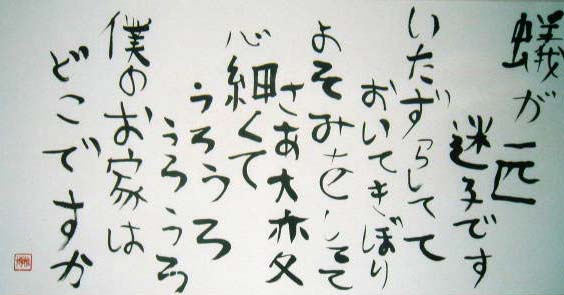 蟻が一匹
迷子です
いたずらしてて
おいてきぼり
よそみをしてて
さあ大変
心細くて
うろうろ
うろうろ
僕のお家は
どこですか